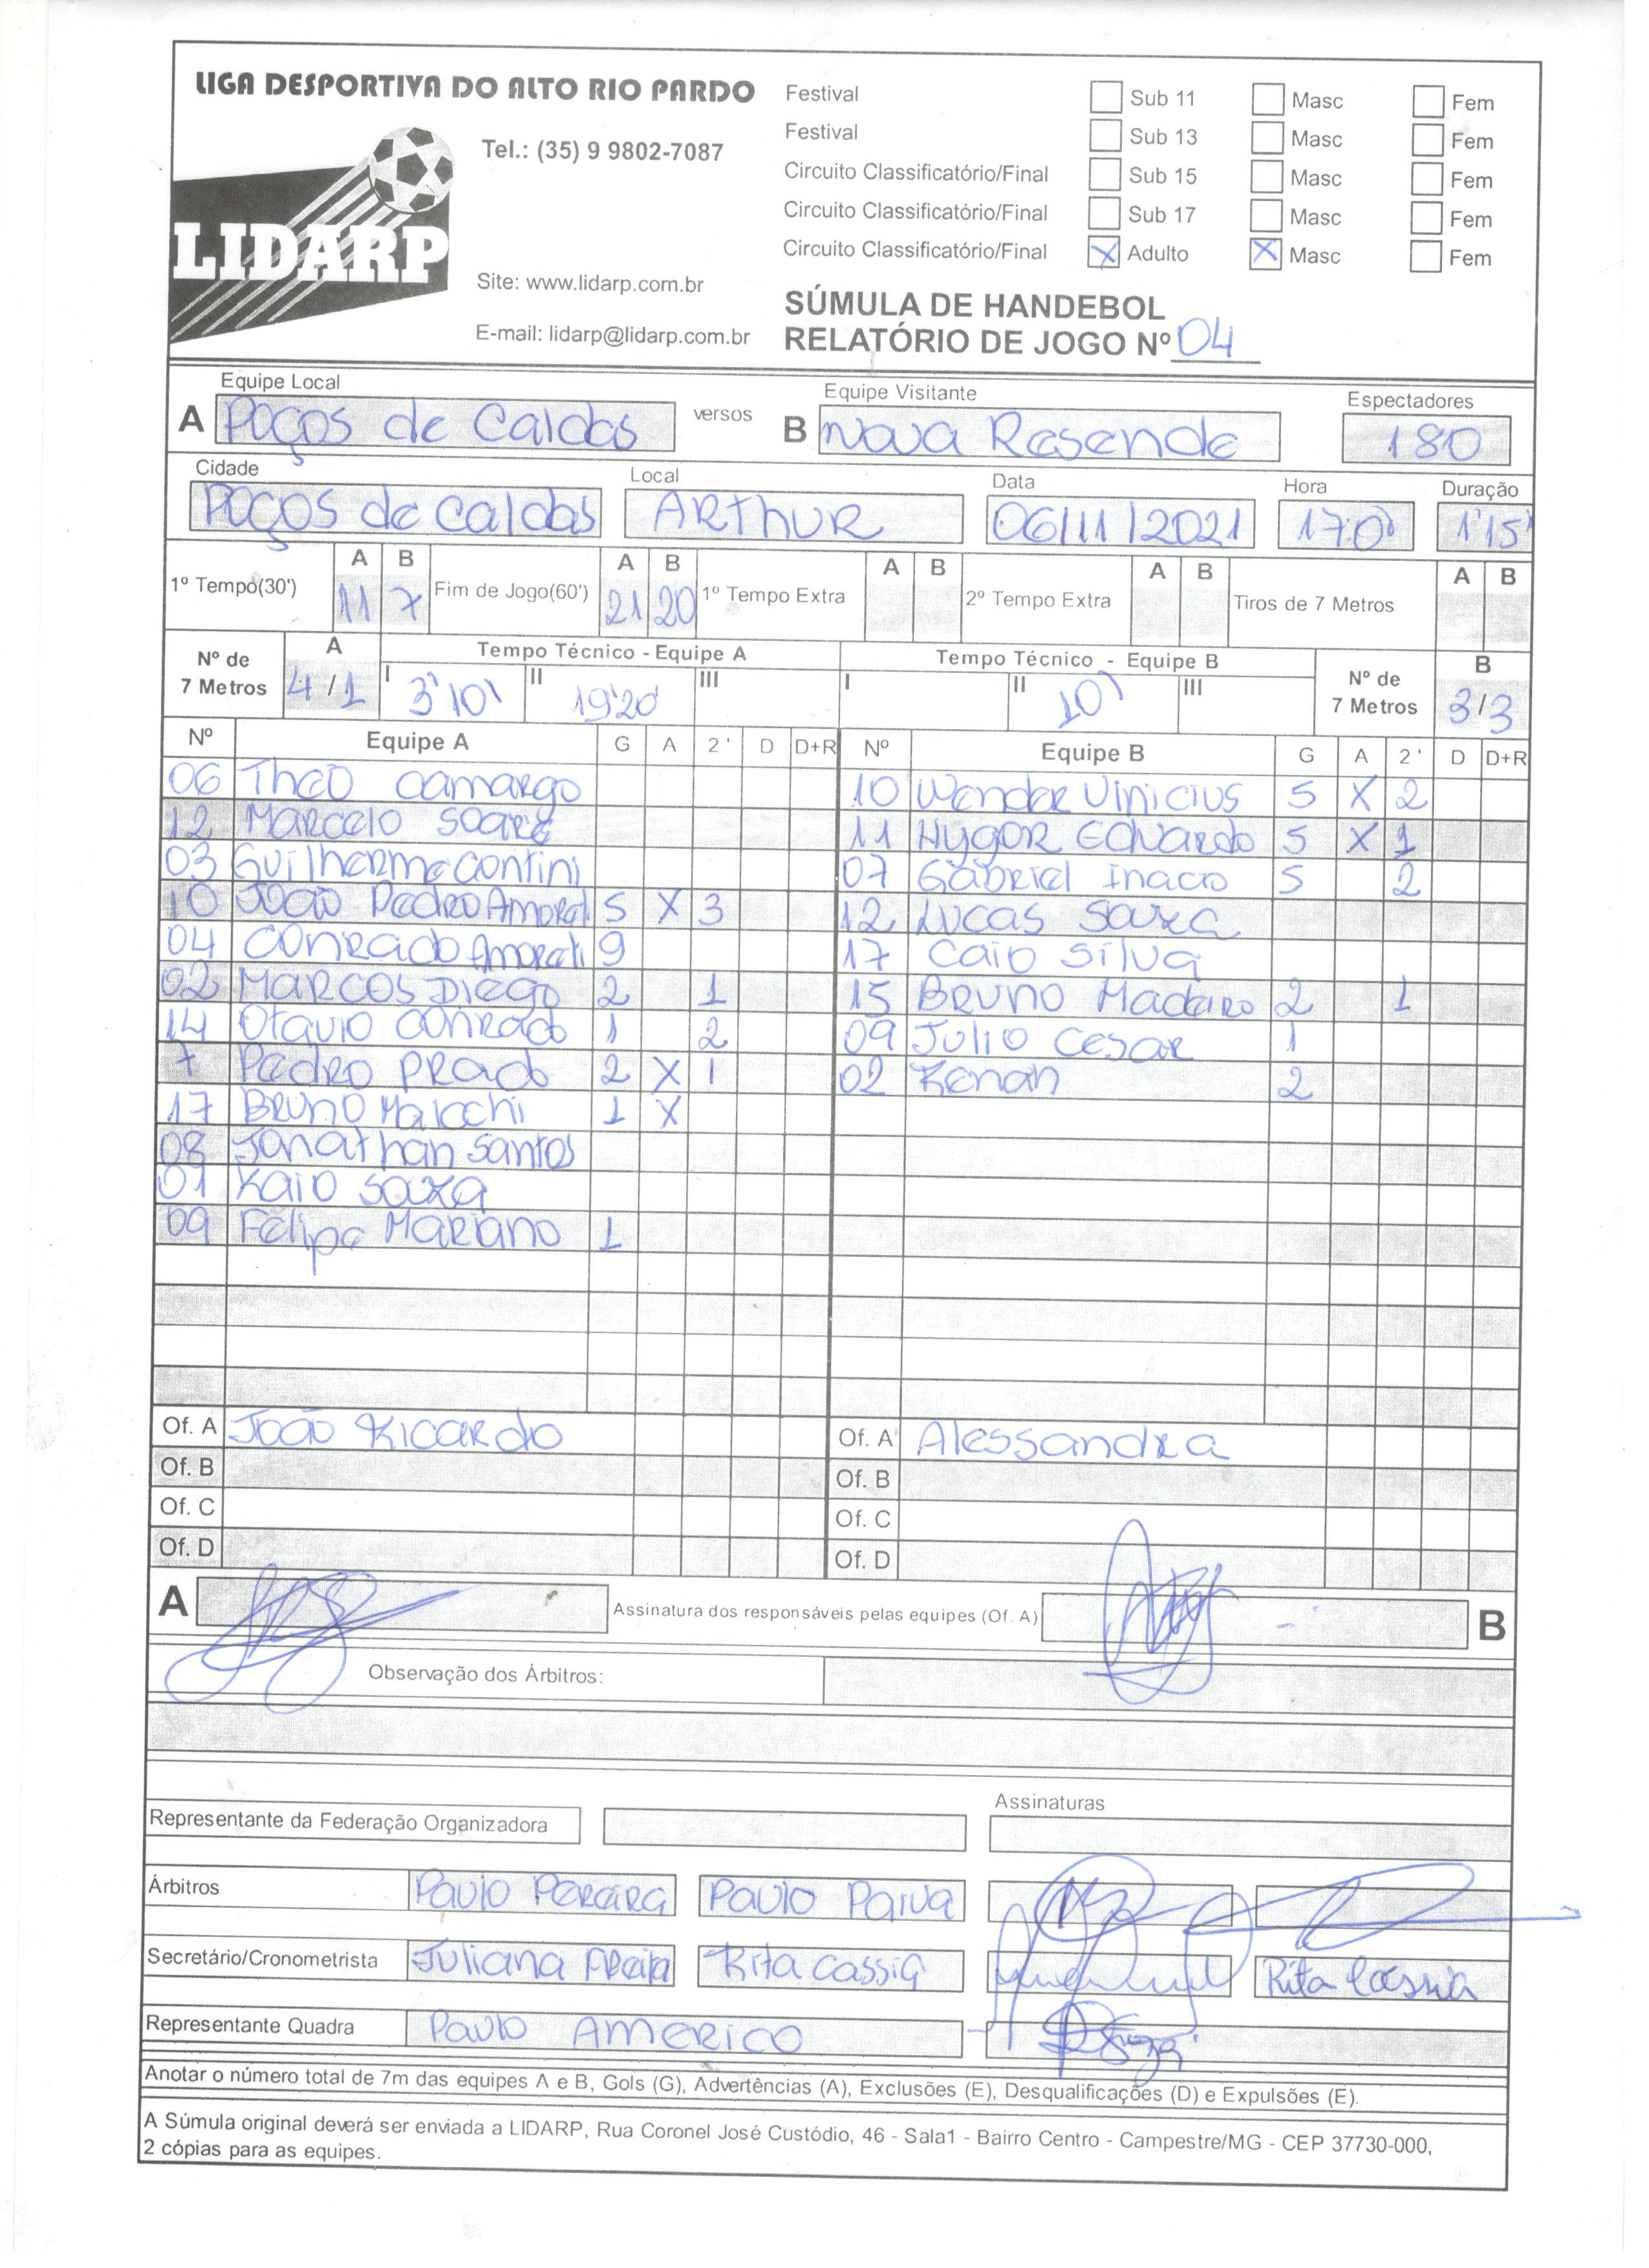 LIGA DESPORTIVA DO ALTO RIO PARDO
Tel.: (35) 9 9802-7087
LIDARP
Site: www.lidarp.com.br
E-mail: lidarp@lidarp.com.br
Festival Sub 11 Masc Fem
Festival Sub 13 Masc Fem
Circuito Classificatório/Final Sub 15 Masc Fem
Circuito Classificatório/Final Sub 17 Masc Fem
Circuito Classificatório/Final X Adulto X Masc Fem
SÚMULA DE HANDEBOL
RELATÓRIO DE JOGO Nº 04
Equipe Local Equipe Visitante Espectadores
A Poços de Caldas versos B Nova Resende 180
Cidade Local Data Hora Duração
Poços de Caldas ARTHUR 06/11/2021 17:00 1'15'
A B A B A B A B A B
1º Tempo(30') 11 7 Fim de Jogo(60') 21 20 1º Tempo Extra 2º Tempo Extra Tiros de 7 Metros
Nº de 7 Metros A 4/1 Tempo Técnico - Equipe A I 3'10' II 19'20' III Tempo Técnico - Equipe B I II 10' III Nº de 7 Metros B 3/3
Nº Equipe A G A 2' D D+R Nº Equipe B G A 2' D D+R
06 Theo Camargo 10 Wendor Vinicius 5 X 2
12 Marcelo Soares 11 Hygor Eduardo 5 X 1
03 Guilherme Contini 07 Gabriel Inacio 5 2
10 João Pedro Amorati 5 X 3 12 Lucas Souza
04 Conrado Amorati 9 17 Caio Silva
02 Marcos Diego 2 1 15 Bruno Madeiro 2 1
14 Otavio Conrado 1 2 09 Julio Cesar 1
7 Pedro Prado 2 X 1 02 Renan 2
17 Bruno 1 X
08 Jonathan Santos
01 Kaio Souza
09 Felipe Mariano 1
Of. A João Ricardo Of. A Alessandra
Of. B Of. B
Of. C Of. C
Of. D Of. D
A Assinatura dos responsáveis pelas equipes (Of. A) B
Observação dos Árbitros:
Assinaturas
Representante da Federação Organizadora
Árbitros Paulo Pereira Paulo Paiva
Secretário/Cronometrista Juliana Rita Cassia Rita Cássia
Representante Quadra Paulo Americo
Anotar o número total de 7m das equipes A e B, Gols (G), Advertências (A), Exclusões (E), Desqualificações (D) e Expulsões (E).
A Súmula original deverá ser enviada a LIDARP, Rua Coronel José Custódio, 46 - Sala1 - Bairro Centro - Campestre/MG - CEP 37730-000,
2 cópias para as equipes.